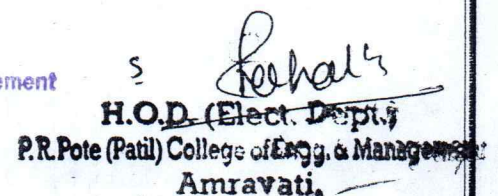 ement
S
H.O.D. (Elect. Dept.)
P.R.Pote (Patil) College of Engg. & Management
Amravati.